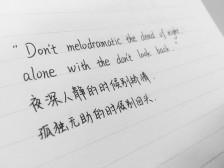 "Don't melodramatic the dead of night
alone with the don't look back."
夜深人静的时候别煽情
孤独无助的时候别回头.